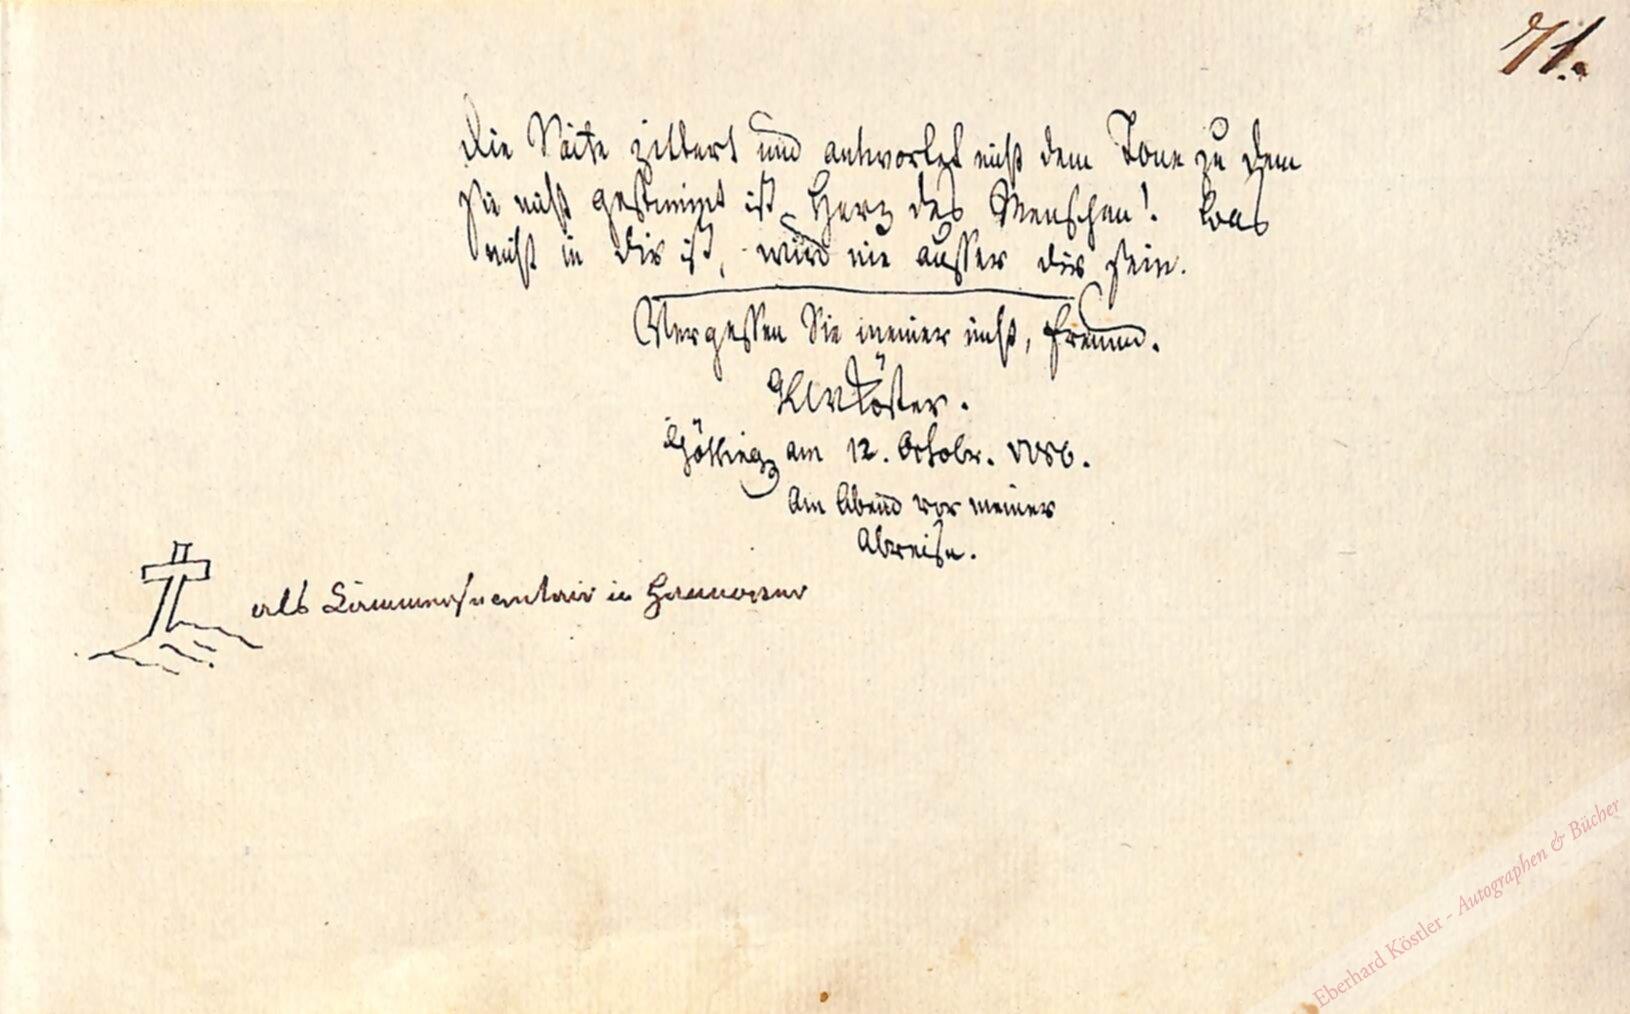 71.
Die Saite zittert und antwortet nicht dem Tone zu dem
sie nicht gestimmt ist. Herz des Menschen! was
nicht in dir ist, wird nie ausser dir sein.
Vergessen Sie meiner nicht, Freund.
Götting am 12. Octobr.
Am Abend vor meiner
Abreise.
als Cammersecretair in Hannover
Eberhard Köstler - Autographen & Bücher